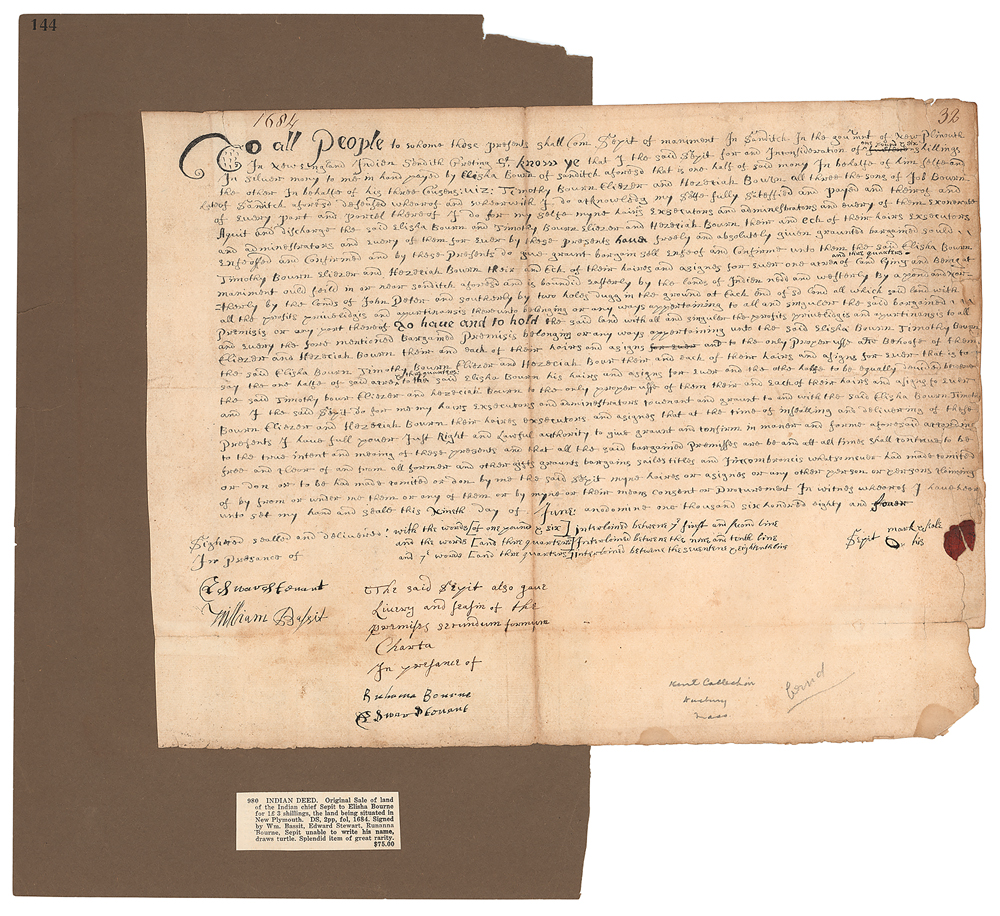 144
1684
32
To all People to whome these presents shall Com Sepit of maniment In Sanditch In the gou'mnt of New Plimouth
In New England Indian Sendith Greeting &c know ye that I the said Sepit for and In consideration of one pound & six shillings
In Silver mony to me in hand payed by Elisha Bourn of sanditch aforesd that is one half of said mony In behalfe of him selfe and
the other In behalfe of his three Cousens: uiz: Timothy Bourn Eliezer and Hezeciah Bowrn all three the sons of Job Bourn
Late of Sanditch aforesd deseased whearof and whearwith I do acknowledg my selfe fully sattesfied and payed and theirof and
of euery part and parcel thereof I do for my selfe myne hairs Exsecutors and administrators and euery of them Exonerate
Aquit and discharge the said Elisha Bourn and Timothy Bourn Eliezer and Hezeciah Bourn their and ech of their hairs Exsecutors
and administrators and euery of them for euer by these presents haue freely and absolutely given graunted bargained sould
Enfeofed and Confirmed and by these presents do giue grant bargain sell Enfeof and Confirme unto them the said Elisha Bourn
and three quarters
Timothy Bourn Eliezer and Hezeciah Bourn their and Ech of their haires and asignes for euer one acre of land lying and Being at
maniment ould feild in or near sanditch aforesd and is bounded easterly by the lands of Indian and westerly by and nor-
therly by the lands of John Peter and southerly by two holes dugg in the ground at Each end of sd land all which said land with
all the profits priueledgis and apurtinansis thereunto belonging or any ways appertaining to all and singuler the said bargained
Premisis or any part thereof To haue and to hold the said land with all and singuler the profits priueledgis and apurtinansis to all
and euery the fore mentioned bargained Premisis belonging or any ways appertaining unto the said Elisha Bourn Timothy Bourn
Eliezer and Hezeciah Bourn their and each of their hairs and asigns for euer and to the only proper use and Behoofe of them
the said Elisha Bourn Timothy Bourn Eliezer and Hezeciah Bour their and each of their hairs and asigns for euer that is to
& three quarters
say the one halfe of said acre to the said Elisha Bourn his hairs and asigns for euer and the other halfe to be equally deuided between
the said Timothy bour Eliezer and hezeciah Bourn to the only proper use of them their and Each of their hairs and asigns for euer
and I the said Sepit do for me my hairs Exsecutors and administrators couenant and graunt to and with the said Elisha Bourn Timothy
Bourn Eliezer and Hezeciah Bourn their haires exsecutors and asignes that at the time of insealing and deliuering of these
Presents I haue full power Just Right and Lawful authority to giue graunt and confirm in maner and forme aforesaid according
to the true intent and meaning of these presents and that all the said bargained premisses are be and att all times shall contineue to be
free and cleare of and from all former and other gifts graunts bargains sailes titles and Incombrencis whatsoeuer had made comited
or don or to be had made comited or don by me the said Sepit myne haires or asignes or any other person or persons claiming
of by from or under me them or any of them or by myne or their means consent or procurement In witness whearof I haue hear
unto set my hand and seale this Ninth Day of June anodomine one thousand six hundred eighty and fouer
Sighned sealled and deliuered with the words [of one pound & six] interlined between ye first and second line
In Presance of and the words [and three quarters] Interlined between the nine and tenth line
and ye words [and three quarters] Interlined between the seuenteen & eighteenth line
Sepit his mark & seale
Edwar Steuart
William Bassit
The said Sepit also gaue
Liuery and seasin of the
premises secundum formum
Charta
In presance of
Ruhama Bourne
Edwar Steuart
Kent Collection
Duxbury
Mass
980 INDIAN DEED. Original Sale of land
of the Indian chief Sepit to Elisha Bourne
for 1£ 3 shillings, the land being situated in
New Plymouth. DS, 2pp, fol, 1684. Signed
by Wm. Bassit, Edward Stewart, Runanna
Bourne, Sepit unable to write his name,
draws turtle. Splendid item of great rarity.
$75.00